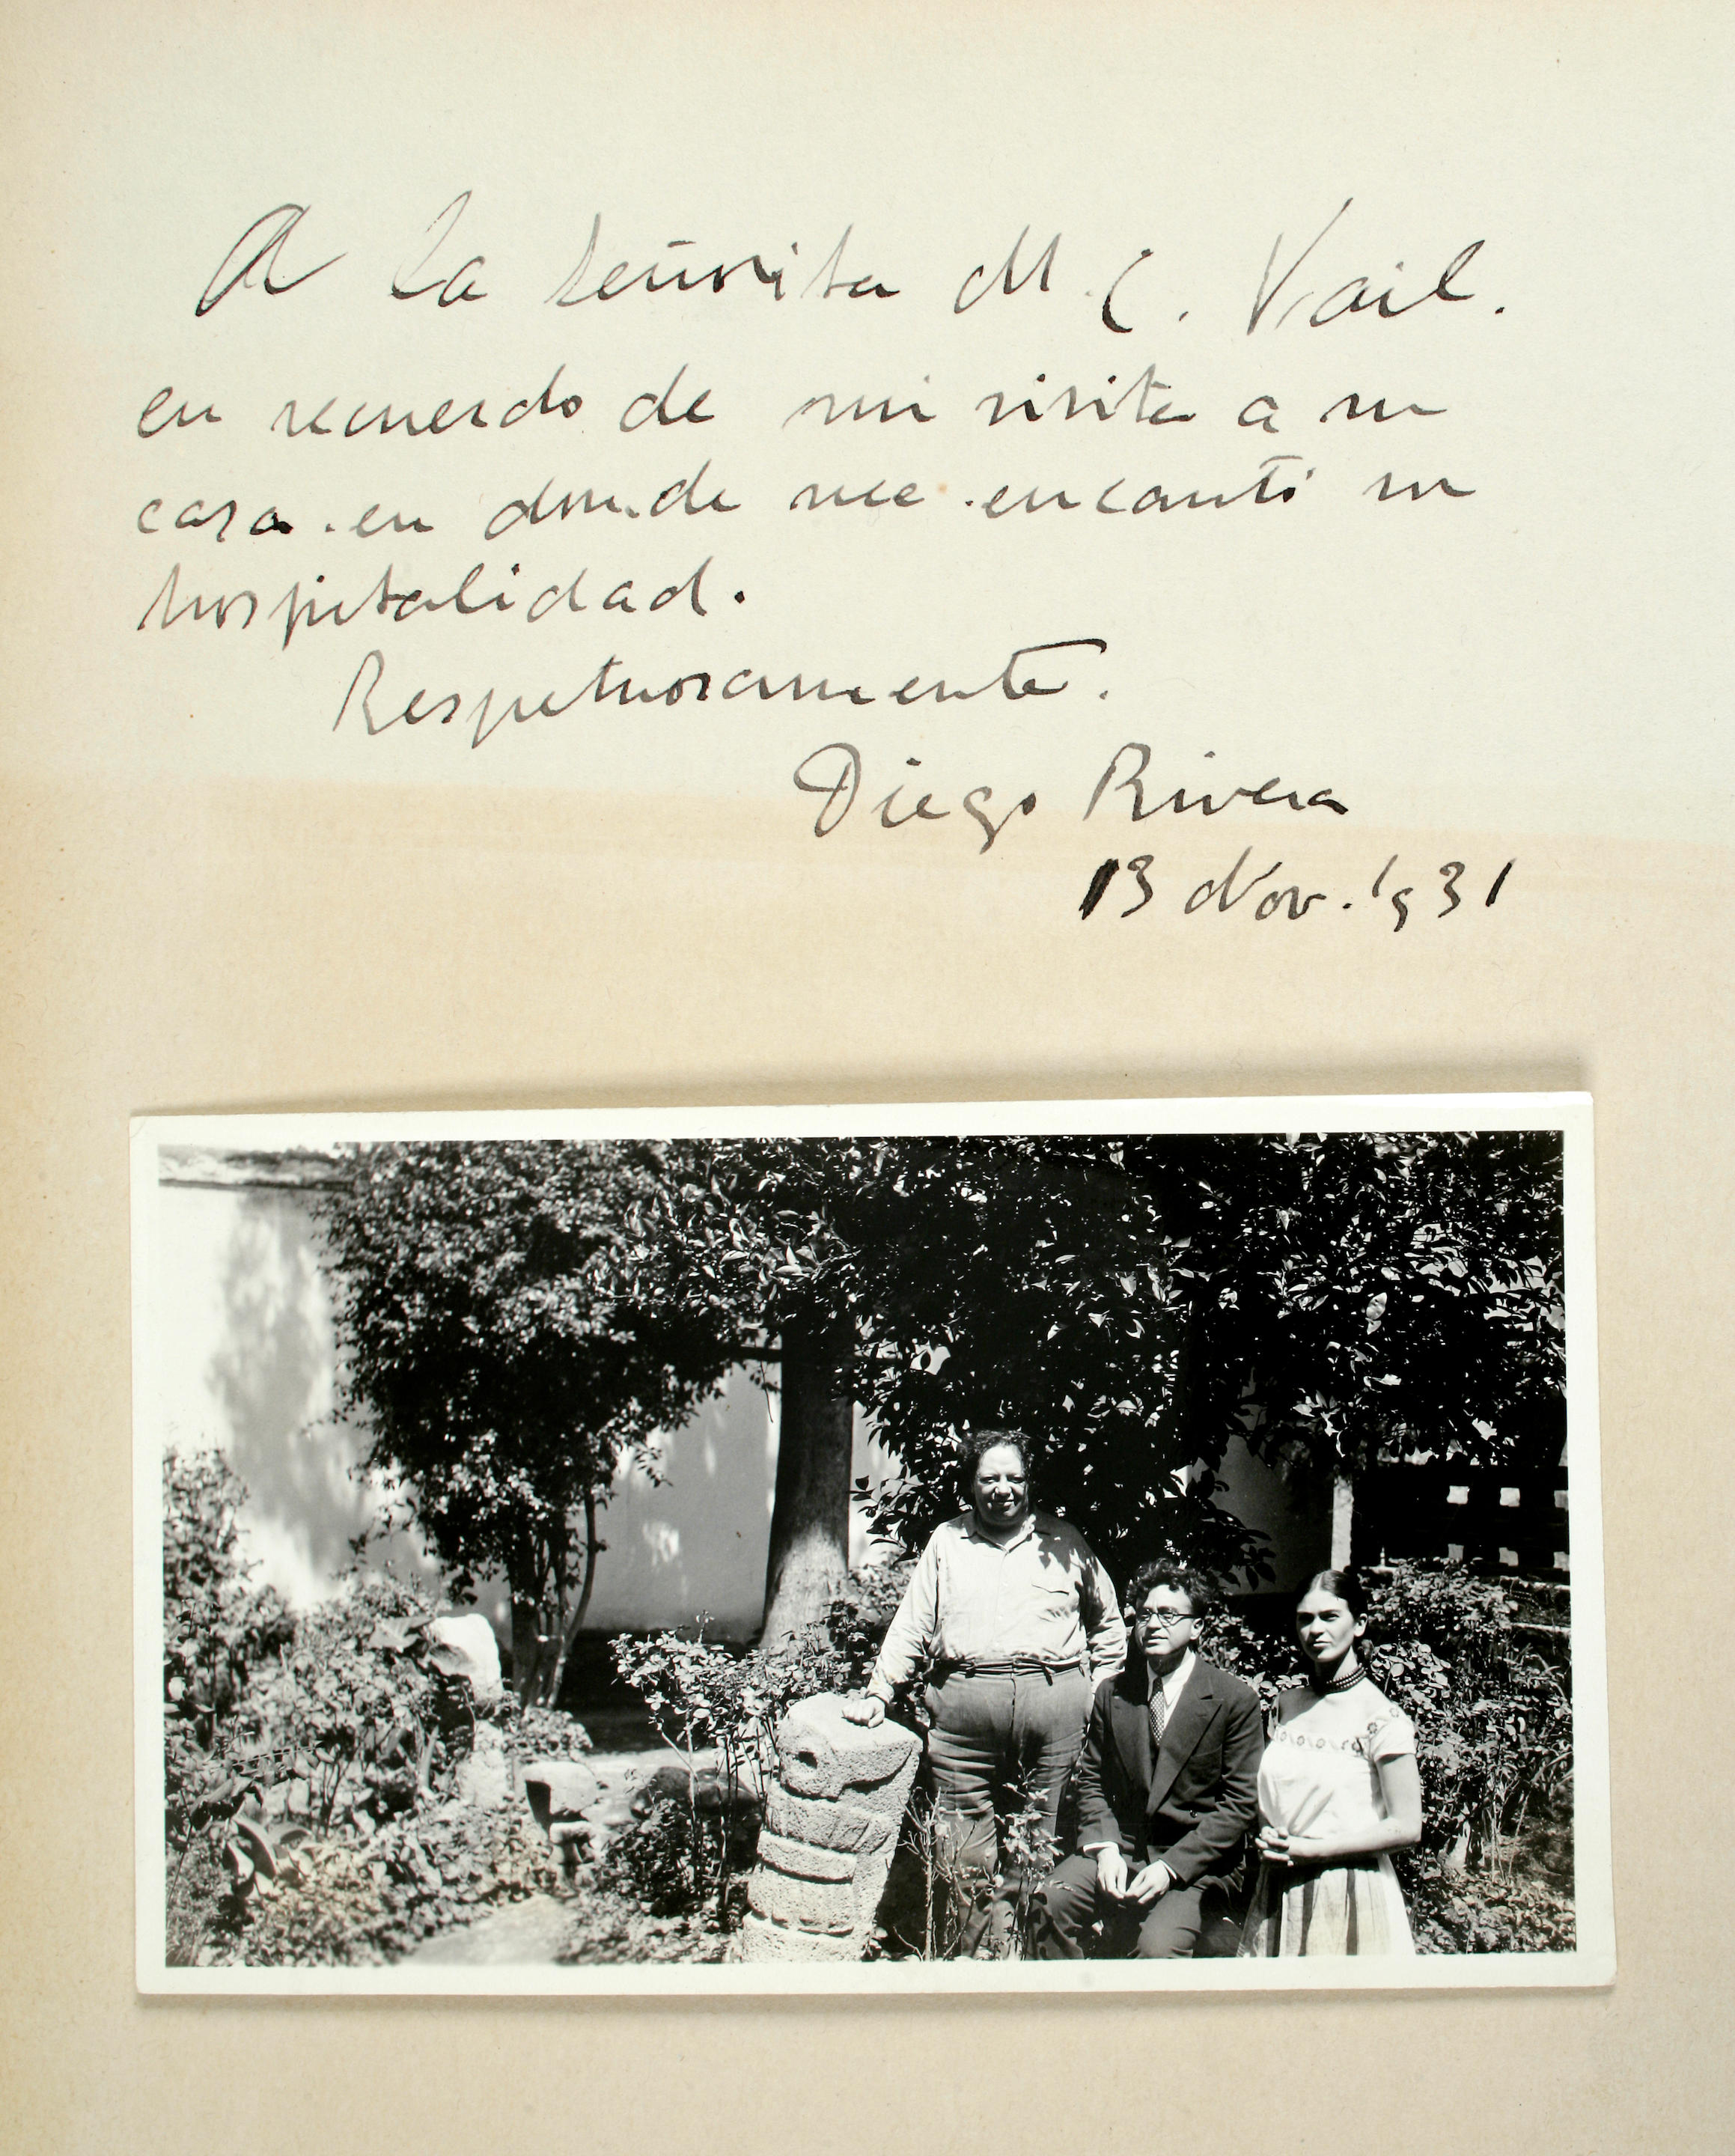 A la señorita M. C. Vail.
en recuerdo de mi visita a su
casa. en donde me encantó su
hospitalidad.
Respetuosamente.
Diego Rivera
13 Nov. 1931